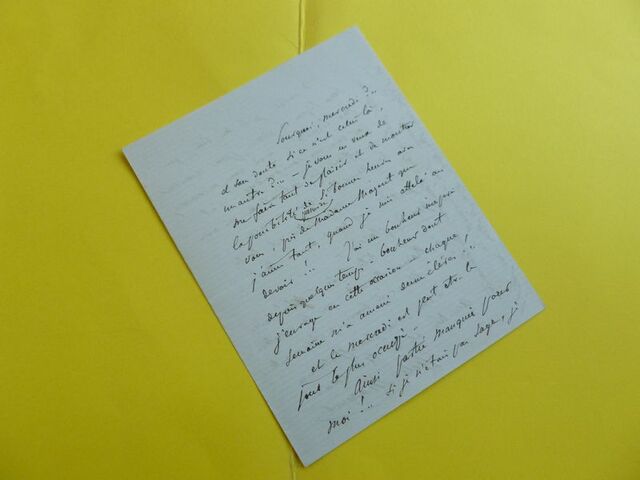 Pourquoi, mercredi ?..
et sans doute si ce n'est celui là,
un autre ?.. – je vous en veux de
me faire tant de plaisir et de montrer
la possibilité de passer si bonnes heures avec
vous, près de Madame que
j'aime tant, quand je suis attelé au
devoir !.. J'ai un bonheur
depuis quelques temps, bonheur dont
j'enrage en cette occasion – chaque
semaine m'a amené deux élèves !..
et le mercredi est peut être le
jour le plus occupé.
Ainsi partie manquée pour
moi !.. Si je n'étais pas sage, je